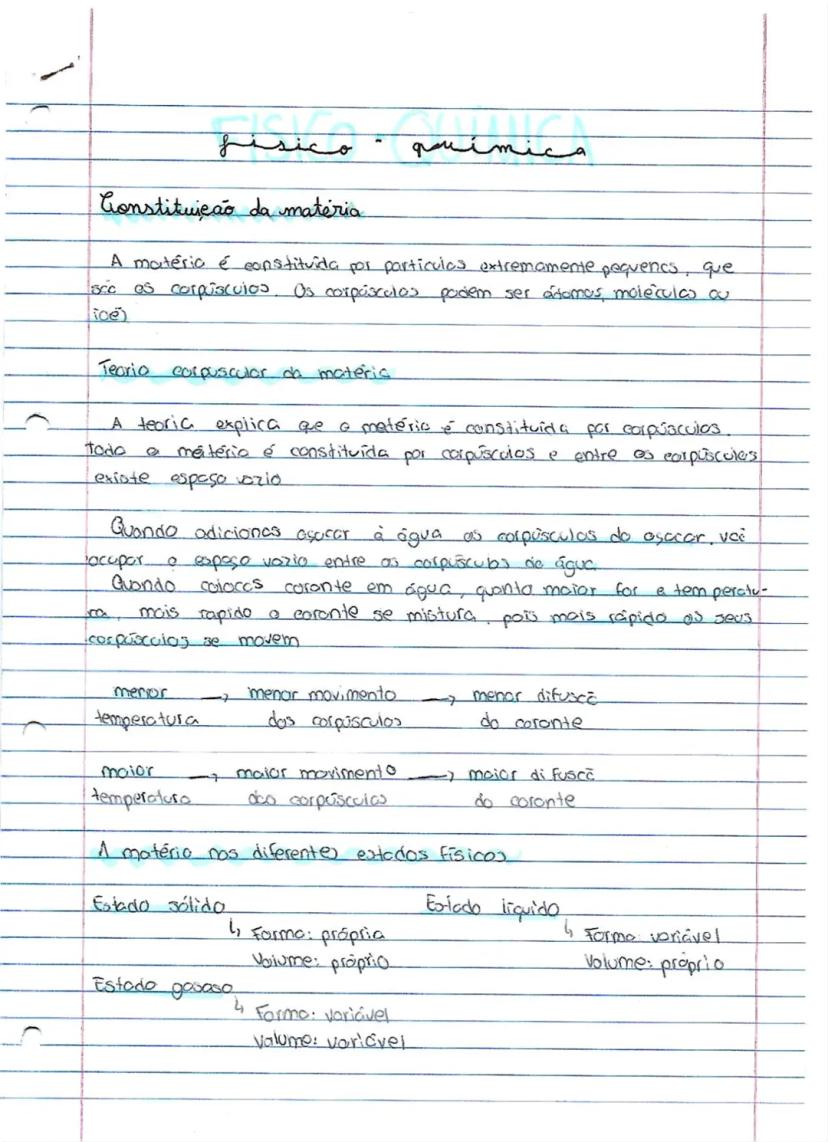 FISICO-QUÍMICA
físico - química
Constituição da matéria
A matéria é constituída por partículas extremamente pequenas, que
são os corpúsculos. Os corpúsculos podem ser átomos, moléculas ou
iões
Teoria corpuscular da matéria
A teoria explica que a matéria é constituída por corpúsculos.
toda a matéria é constituída por corpúsculos e entre os corpúsculos
existe espaço vazio
Quando adicionas açucar à água os corpúsculos do açucar, vão
ocupar o espaço vazio entre os corpúsculos de água
Quando colocas corante em água, quanto maior for a temperatu-
ra, mais rapido o corante se mistura, pois mais rápido os seus
corpúsculos se movem
menor → menor movimento → menor difusão
temperatura dos corpúsculos do corante
maior → maior movimento → maior difusão
temperatura dos corpúsculos do corante
A matéria nos diferentes estados físicos
Estado sólido Estado líquido
↳ Forma: própria ↳ Forma: variável
Volume: próprio Volume: próprio
Estado gasoso
↳ Forma: variável
Volume: variável